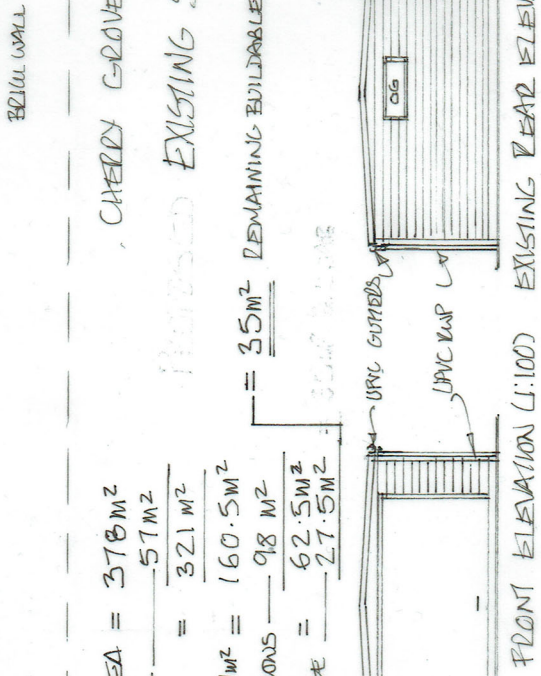 BRICK WALL
CHERRY GROVE
EXISTING
= 378m²
57m²
= 321m²
m² = 160.5m²
98m²
= 62.5m²
27.5m²
= 35m² REMAINING BUILDABLE
UPVC GUTTERS
UPVC RWP
OG
FRONT ELEVATION (1:100)
EXISTING REAR ELEV